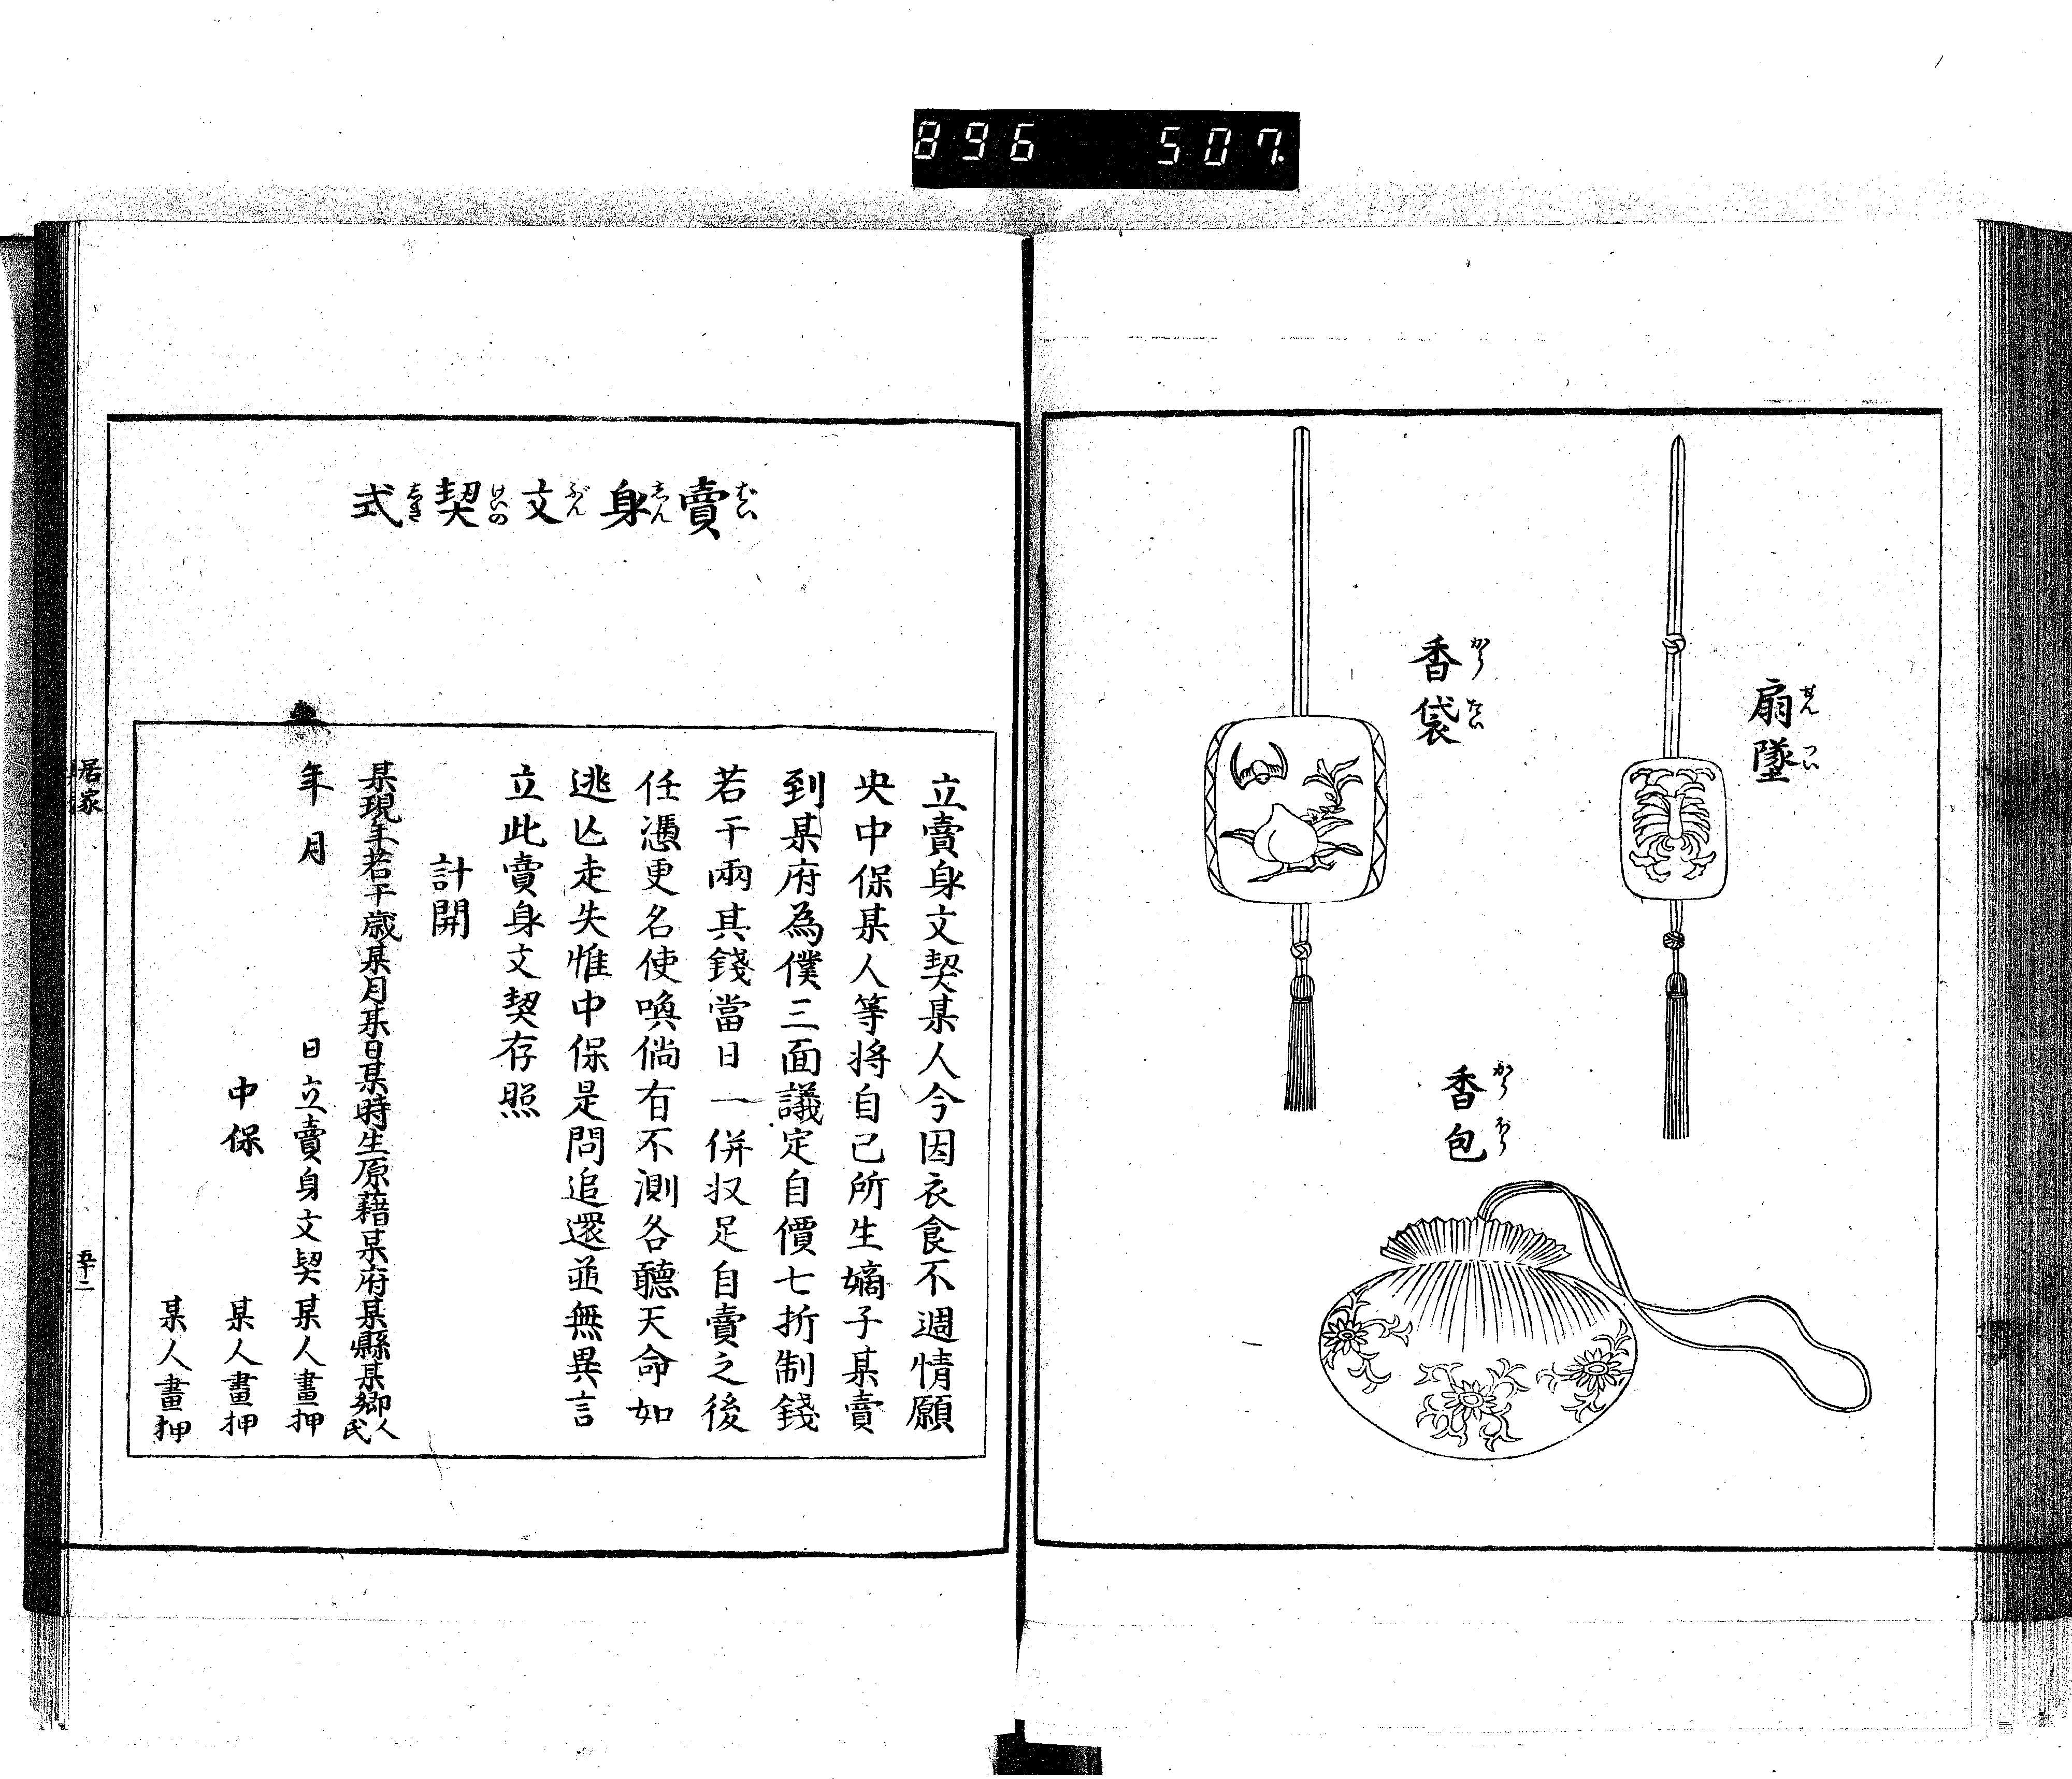 896 507
扇墜
せん つい
香袋
かう たい
香包
かう はう
賣身文契式
まい しん ぶん けいの しき
立賣身文契某人今因衣食不週情願
央中保某人等将自己所生嫡子某賣
到某府為僕三面議定自價七折制錢
若干兩其錢當日一併収足自賣之後
任憑更名使喚倘有不測各聽天命如
逃亾走失惟中保是問追還並無異言
立此賣身文契存照
計開
某現年若干歳某月某日某時生原藉某府某縣某鄉人民
年月 日立賣身文契某人畫押
中保 某人畫押
某人畫押
居家
五十二